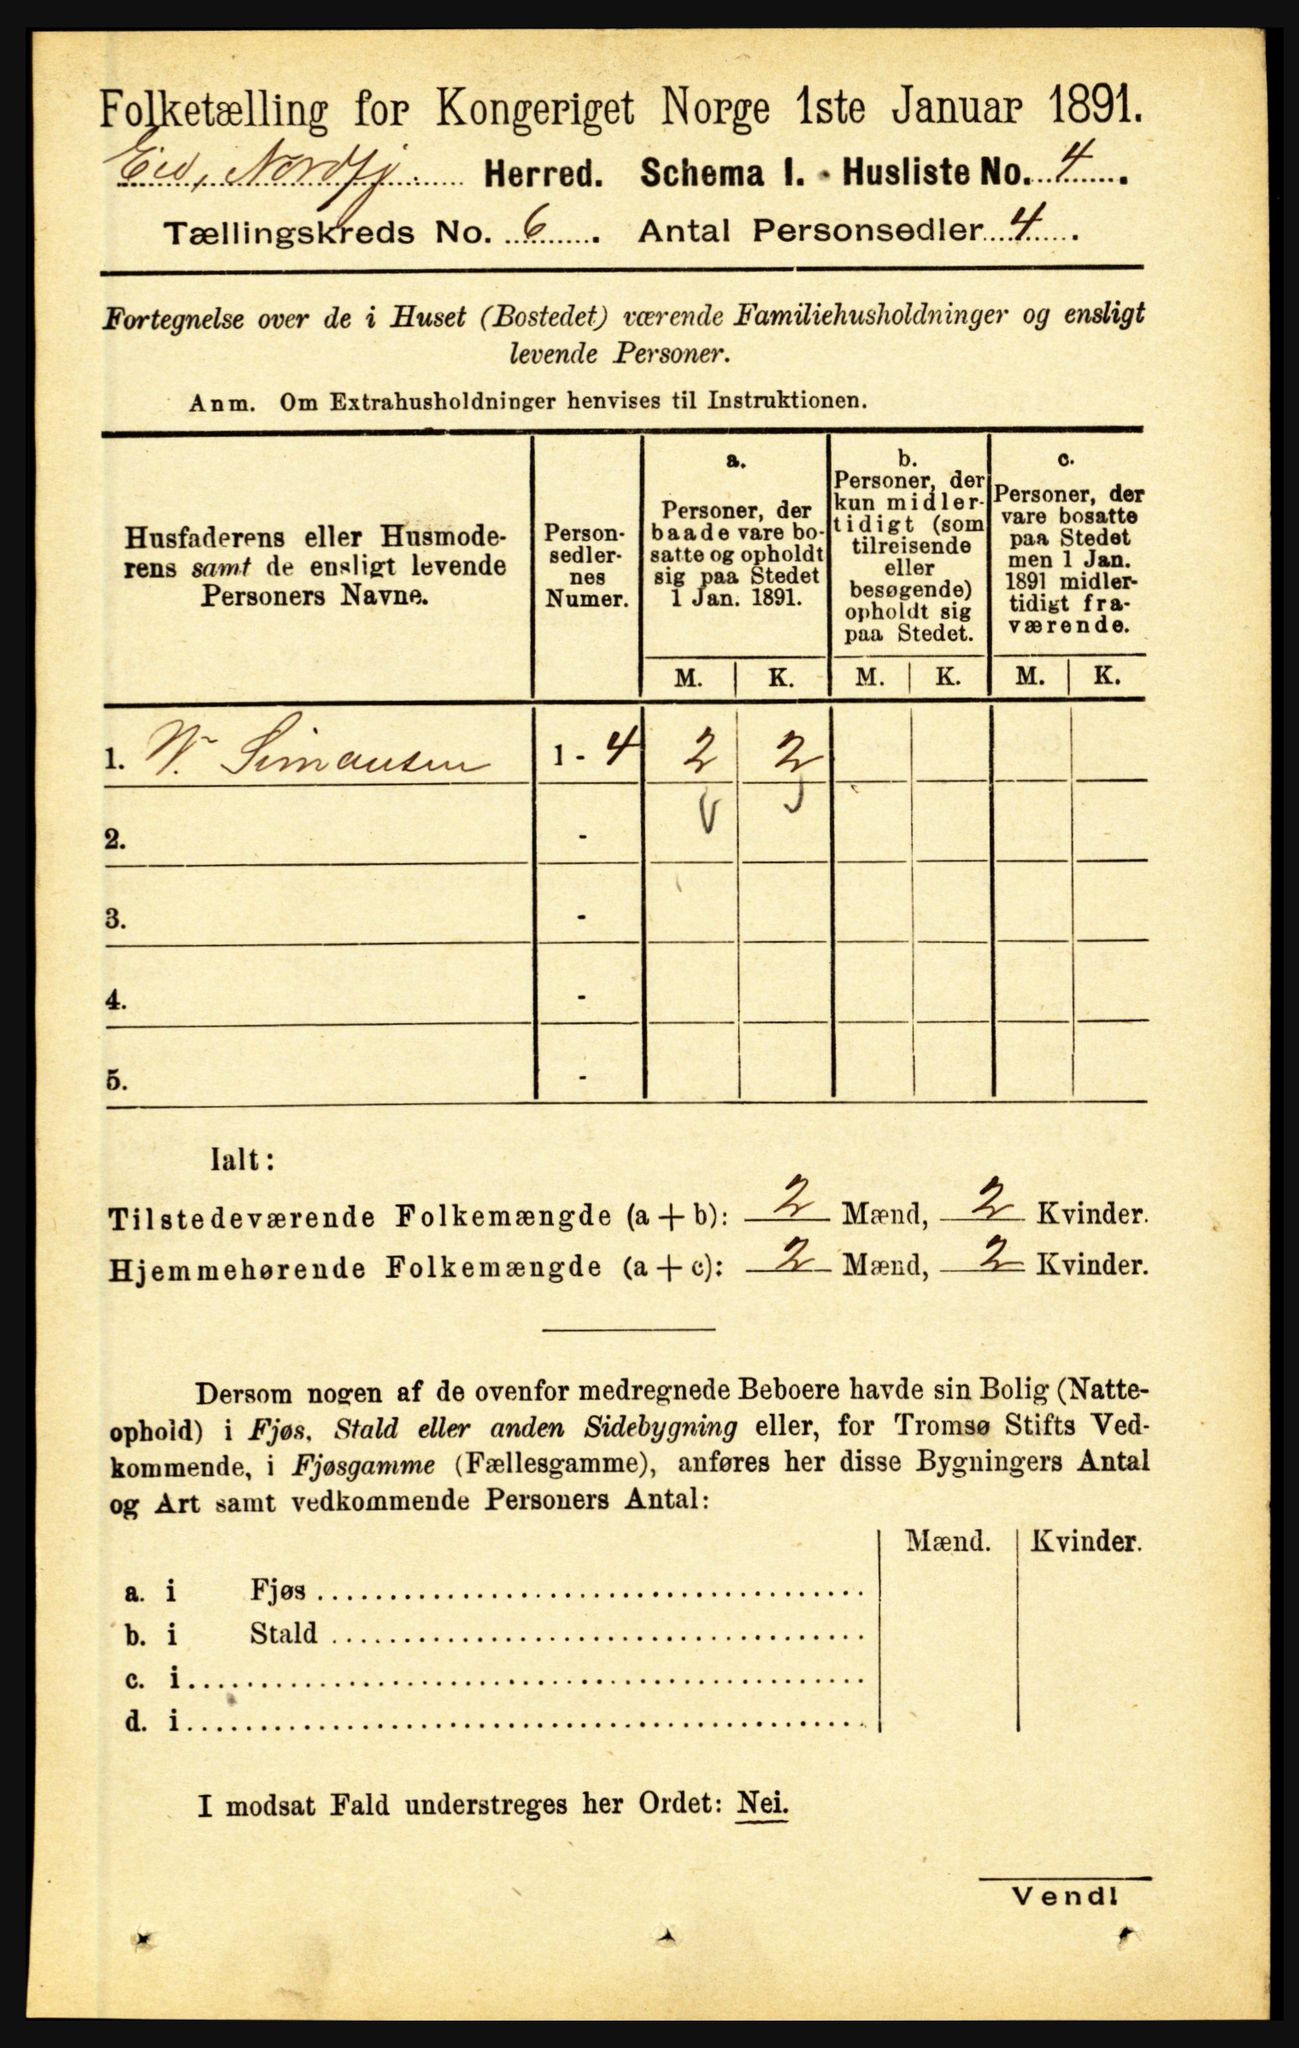 Folketælling for Kongeriget Norge 1ste Januar 1891.
Eid, Nordfj. Herred. Schema I. Husliste No. 4.
Tællingskreds No. 6. Antal Personsedler 4.
Fortegnelse over de i Huset (Bostedet) værende Familiehusholdninger og ensligt
levende Personer.
Anm. Om Extrahusholdninger henvises til Instruktionen.
Husfaderens eller Husmode-
rens samt de ensligt levende
Personers Navne.
Person-
sedler-
nes
Numer.
a.
Personer, der
baade vare bo-
satte og opholdt
sig paa Stedet
1 Jan. 1891.
b.
Personer, der
kun midler-
tidigt (som
tilreisende
eller
besøgende)
opholdt sig
paa Stedet.
c.
Personer, der
vare bosatte
paa Stedet
men 1 Jan.
1891 midler-
tidigt fra-
værende.
M. K. M. K. M. K.
1. W. Simonsen 1 - 4 2 2
2. -
3. -
4. -
5. -
Ialt:
Tilstedeværende Folkemængde (a + b): 2 Mænd, 2 Kvinder.
Hjemmehørende Folkemængde (a + c): 2 Mænd, 2 Kvinder.
Dersom nogen af de ovenfor medregnede Beboere havde sin Bolig (Natte-
ophold) i Fjøs, Stald eller anden Sidebygning eller, for Tromsø Stifts Ved-
kommende, i Fjøsgamme (Fællesgamme), anføres her disse Bygningers Antal
og Art samt vedkommende Personers Antal:
Mænd. Kvinder.
a. i Fjøs
b. i Stald
c. i
d. i
I modsat Fald understreges her Ordet: Nei.
Vend!